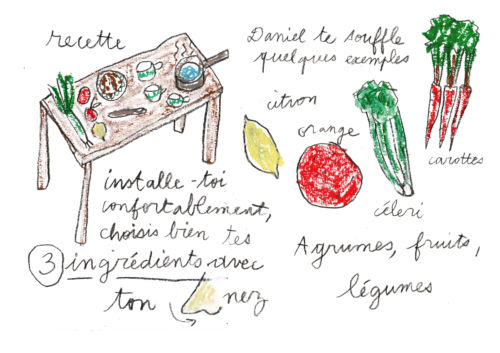 recette
installe-toi
confortablement,
choisis bien tes
3 ingrédients avec
ton nez
Daniel te souffle
quelques exemples
citron
orange
céleri
carottes
Agrumes, fruits,
légumes